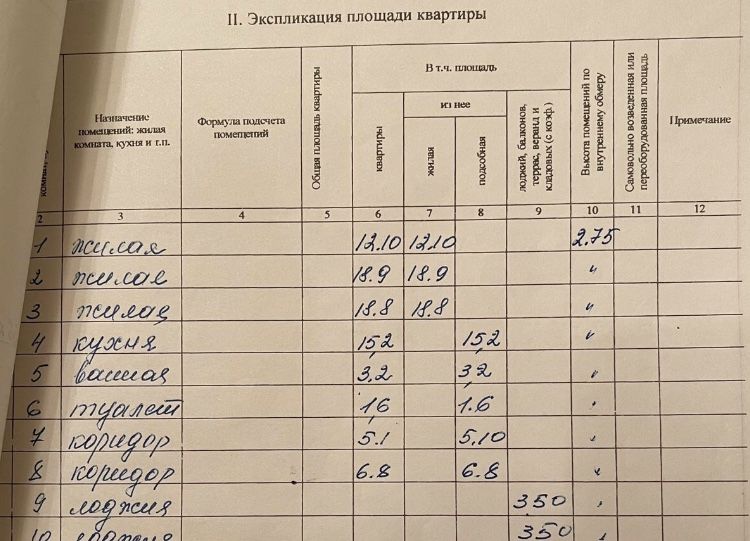 II. Экспликация площади квартиры
Назначение помещений: жилая комната, кухня и т.п.
Формула подсчета помещений
Общая площадь квартиры
В т.ч. площадь
квартиры
из нее
жилая
подсобная
лоджий, балконов, террас, веранд и кладовых (с коэф.)
Высота помещений по внутреннему обмеру
Самовольно возведенная или переоборудованная площадь
Примечание
2 3 4 5 6 7 8 9 10 11 12
1 жилая 12.10 12.10 2.75
2 жилая 18.9 18.9 "
3 жилая 18.8 18.8 "
4 кухня 15,2 15,2 "
5 ванная 3,2 3,2 "
6 туалет 1,6 1.6 "
7 коридор 5.1 5.10 "
8 коридор 6.8 6.8 "
9 лоджия 3.50 "
10 лоджия 3.50 "